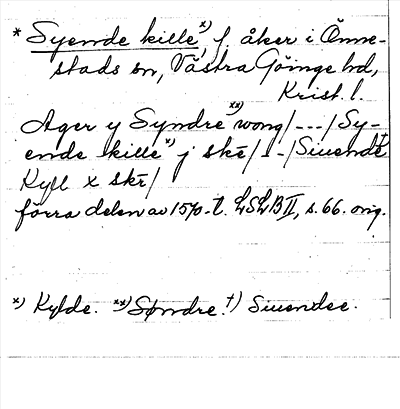 * Syende kille x), f. åker i Önne-
stads sn, Västra Göinge hd,
Krist. l.
Ager y Syndre xx) wong/---/Sy-
ende kille x) j skē/--/Siuende †)
Kyll x skr/
förra delen av 1570-t. LSLB II, s. 66. orig.
x) Kylde. xx) Søndre. †) Siuendee.